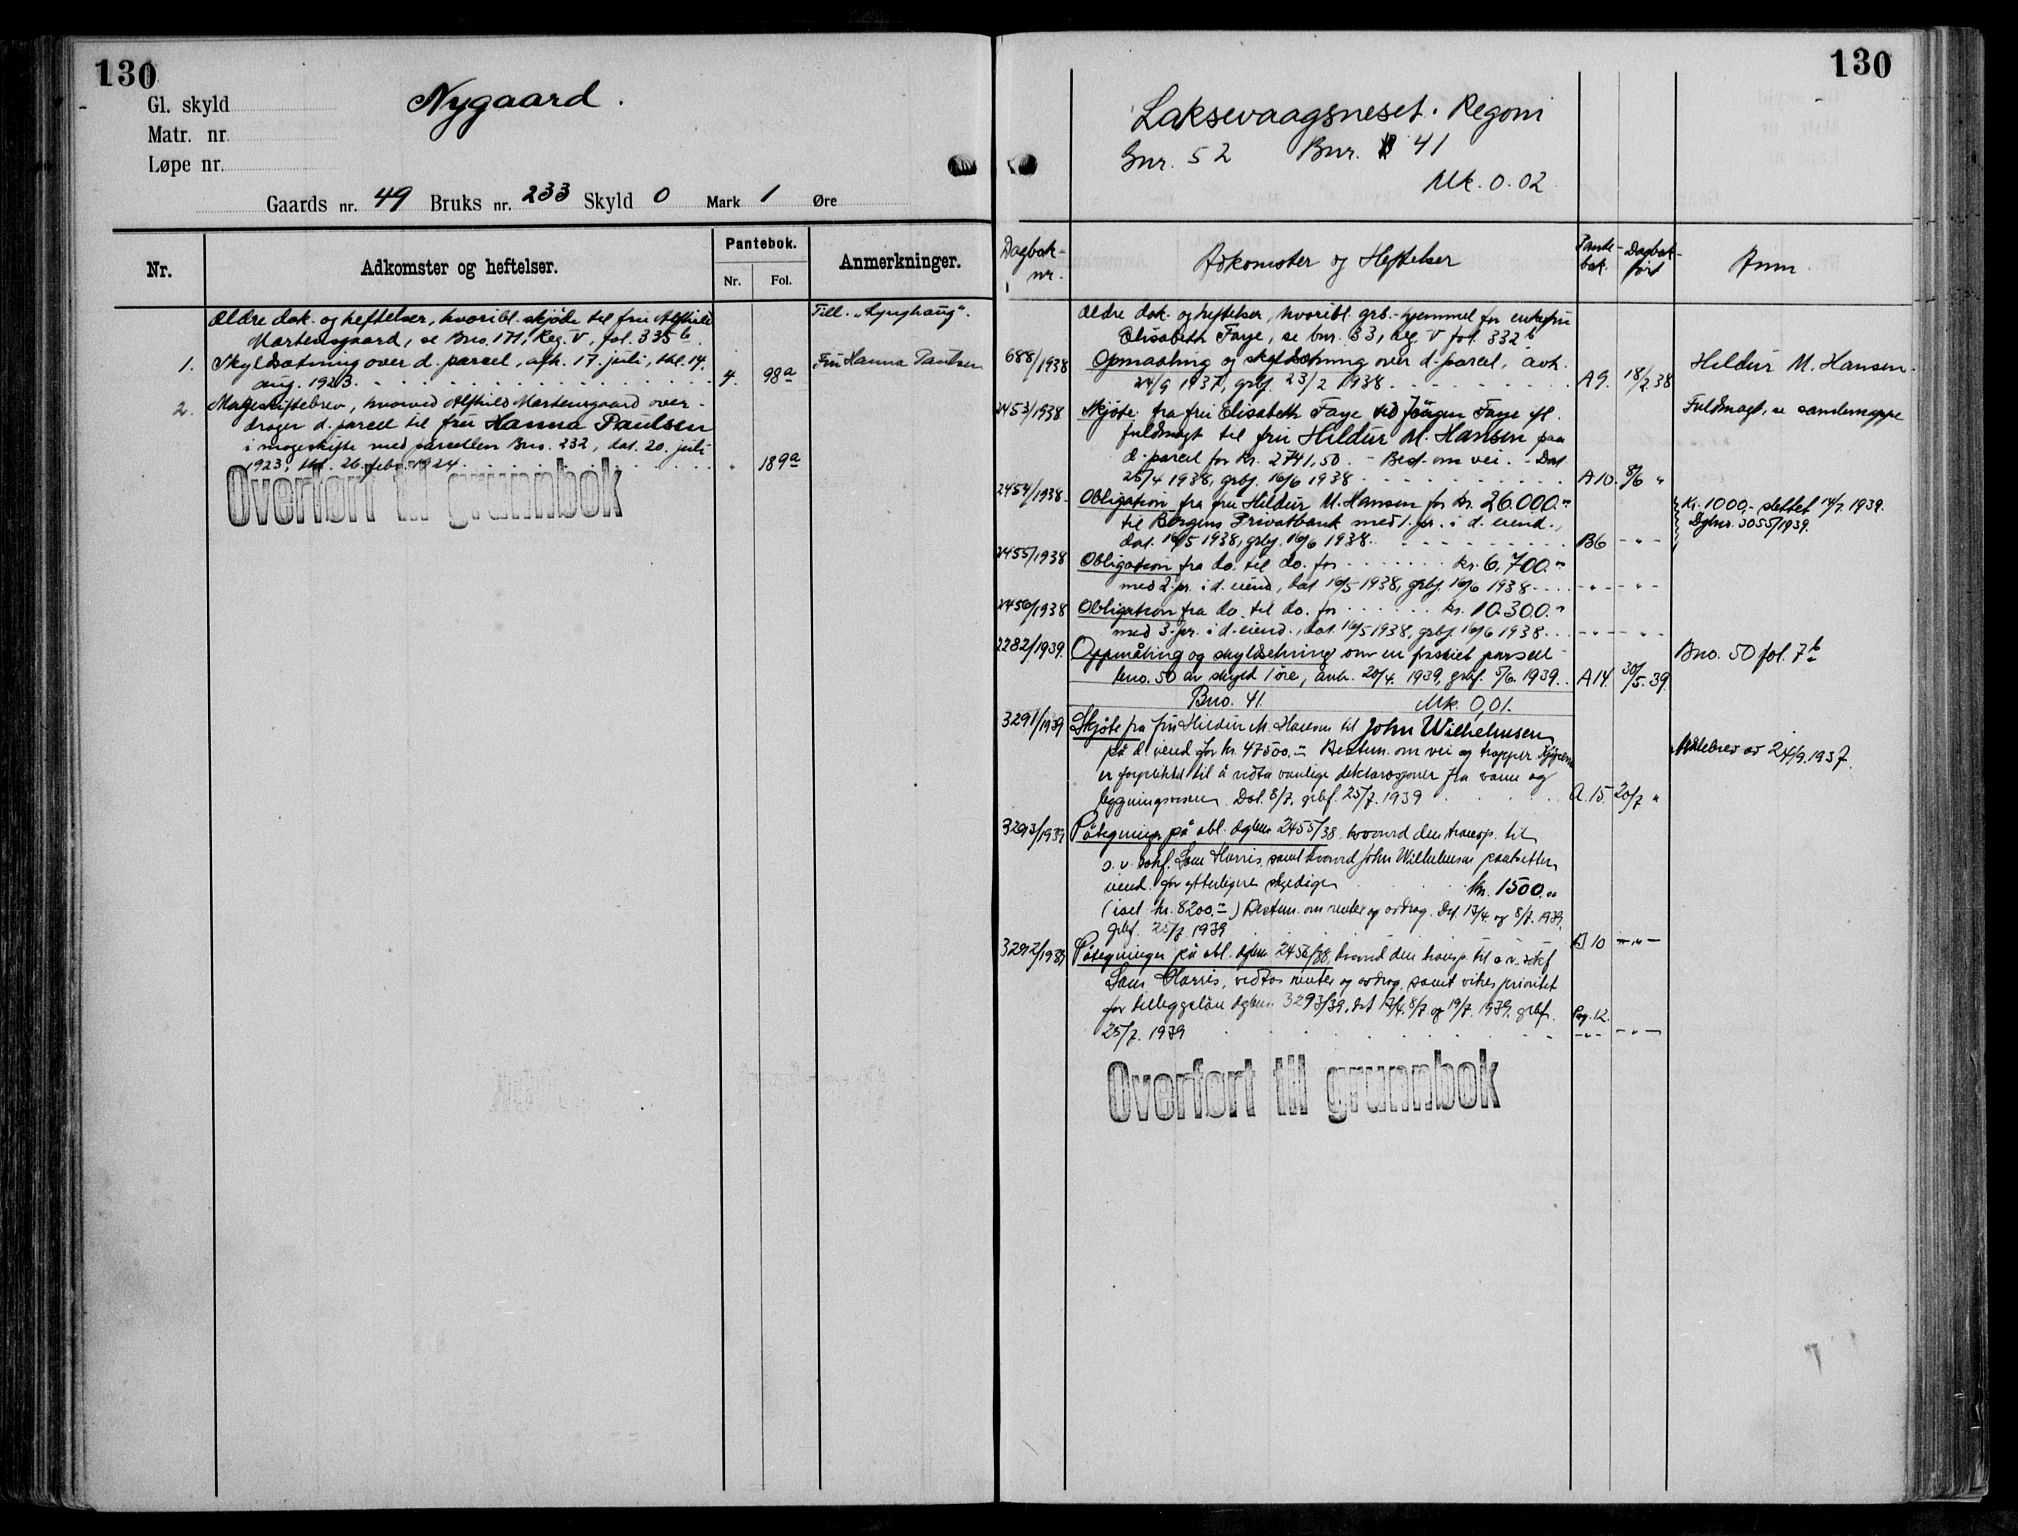 130
Gl. skyld
Nygaard.
Matr. nr.
Løpe nr.
Gaards nr. 49 Bruks nr. 233 Skyld 0 Mark 1 Øre
Nr.
Adkomster og heftelser.
Pantebok.
Nr. Fol.
Anmerkninger.
Ældre dok. og heftelser, hvoribl. skjøde til fru Alfhild
Mortensgaard, se Bno. 171, Reg. V, fol. 335 b.
Till. „Lynghaug".
1. Skyldsætning over d. parcel, afh. 17. juli, thl. 14.
aug. 1923. 4. 98a
Fru Hanna Paulsen
2. Mageskiftebrev, hvorved Alfhild Mortensgaard over-
drager d. parcel til fru Hanna Paulsen
i mageskifte med parcellen Bno. 232, dat. 20. juli
1923, thl. 26. febr. 1924. " 189a
Overført til grunnbok
130
Laksevaagsneset. Regoni
Gnr. 52 Bnr. 41
Mk. 0.02
Dagbok-
nr.
Adkomster og Heftelser
Pante-
bok.
Dagbok-
ført
Anm.
Ældre dok. og heftelser, hvoribl. grb.-hjemmel for enkefru
Elisabeth Faye, se bnr. 33, reg V fol. 332 b
688/1938 Opmaaling og skyldsetning over d. parcel, avh.
24/9 1937, grbf. 23/2 1938 A9. 18/2.38
Hildur M. Hansen.
2453/1938 Skjøte fra fru Elisabeth Faye ved Jørgen Faye ifl.
fuldmagt til fru Hildur M. Hansen paa
d. parcel for kr. 2741,50. - Best. om vei. - Dat
25/4 1938, grbf. 16/6 1938 A10. 8/6 "
Fuldmagt, se samlemappe
2454/1938 Obligation fra fru Hildur M. Hansen for kr. 26.000.-
til Bergens Privatbank med 1. pr. i d. eiend.,
dat. 16/5 1938, grbf. 16/6 1938. B6 - " -
Kr. 1000,- slettet 14/7. 1939.
Dgbnr. 3055/1939.
2455/1938 Obligation fra do. til do. for kr. 6.700.-
med 2. pr. i d. eiend, dat 16/5 1938, grbf. 16/6 1938 - " - - " -
2456/1938 Obligation fra do. til do. for kr. 10.300.-
med 3. pr. i d. eiend., dat. 16/5 1938, grbf. 16/6 1938 - " - - " -
2282/1939. Oppmåling og skyldsetning over en fraskilt parsell
bno. 50 av skyld 1 øre, avh. 20/4. 1939, grbf. 5/6. 1939. A14. 30/5.39.
Bno. 50 fol. 7 b
Bno. 41. Mk. 0,01.
3291/1939 Skjøte fra fru Hildur M. Hansen til John Wilhelmsen
på d. eiend for kr. 47500.- Bestem. om vei og trapper Kjøperen
er forpliktet til å vedta vanlige deklarasjoner fra vann og
bygningsvesen. Dat. 8/7. grbf. 25/7. 1939 A.15. 20/7 "
Målebrev av 24/9.1937.
3293/1939 Påtegninger på obl. dgbnr 2455/38, hvorved den transp. til
o.r.sakf. Sam Harris, samt hvorved John Wilhelmsen pantsetter
eiend. for ytterligere skyldige kr. 1500.-
(ialt kr. 8200.-) Bestem. om renter og avdrag. Dat. 13/4. og 8/7. 1939,
grbf. 25/7. 1939 B 10 - " -
3292/1939 Påtegninger på obl. dgbnr. 2456/38, hvorved den transp. til o.r.sakf
Sam Harris, vedtas renter og avdrag, samt vikes prioritet
for tilleggslån dgbnr. 3293/39, dat 13/4, 8/7 og 19/7. 1939, grbf.
25/7. 1939 Pag. 12. - " - - " -
Overført til grunnbok